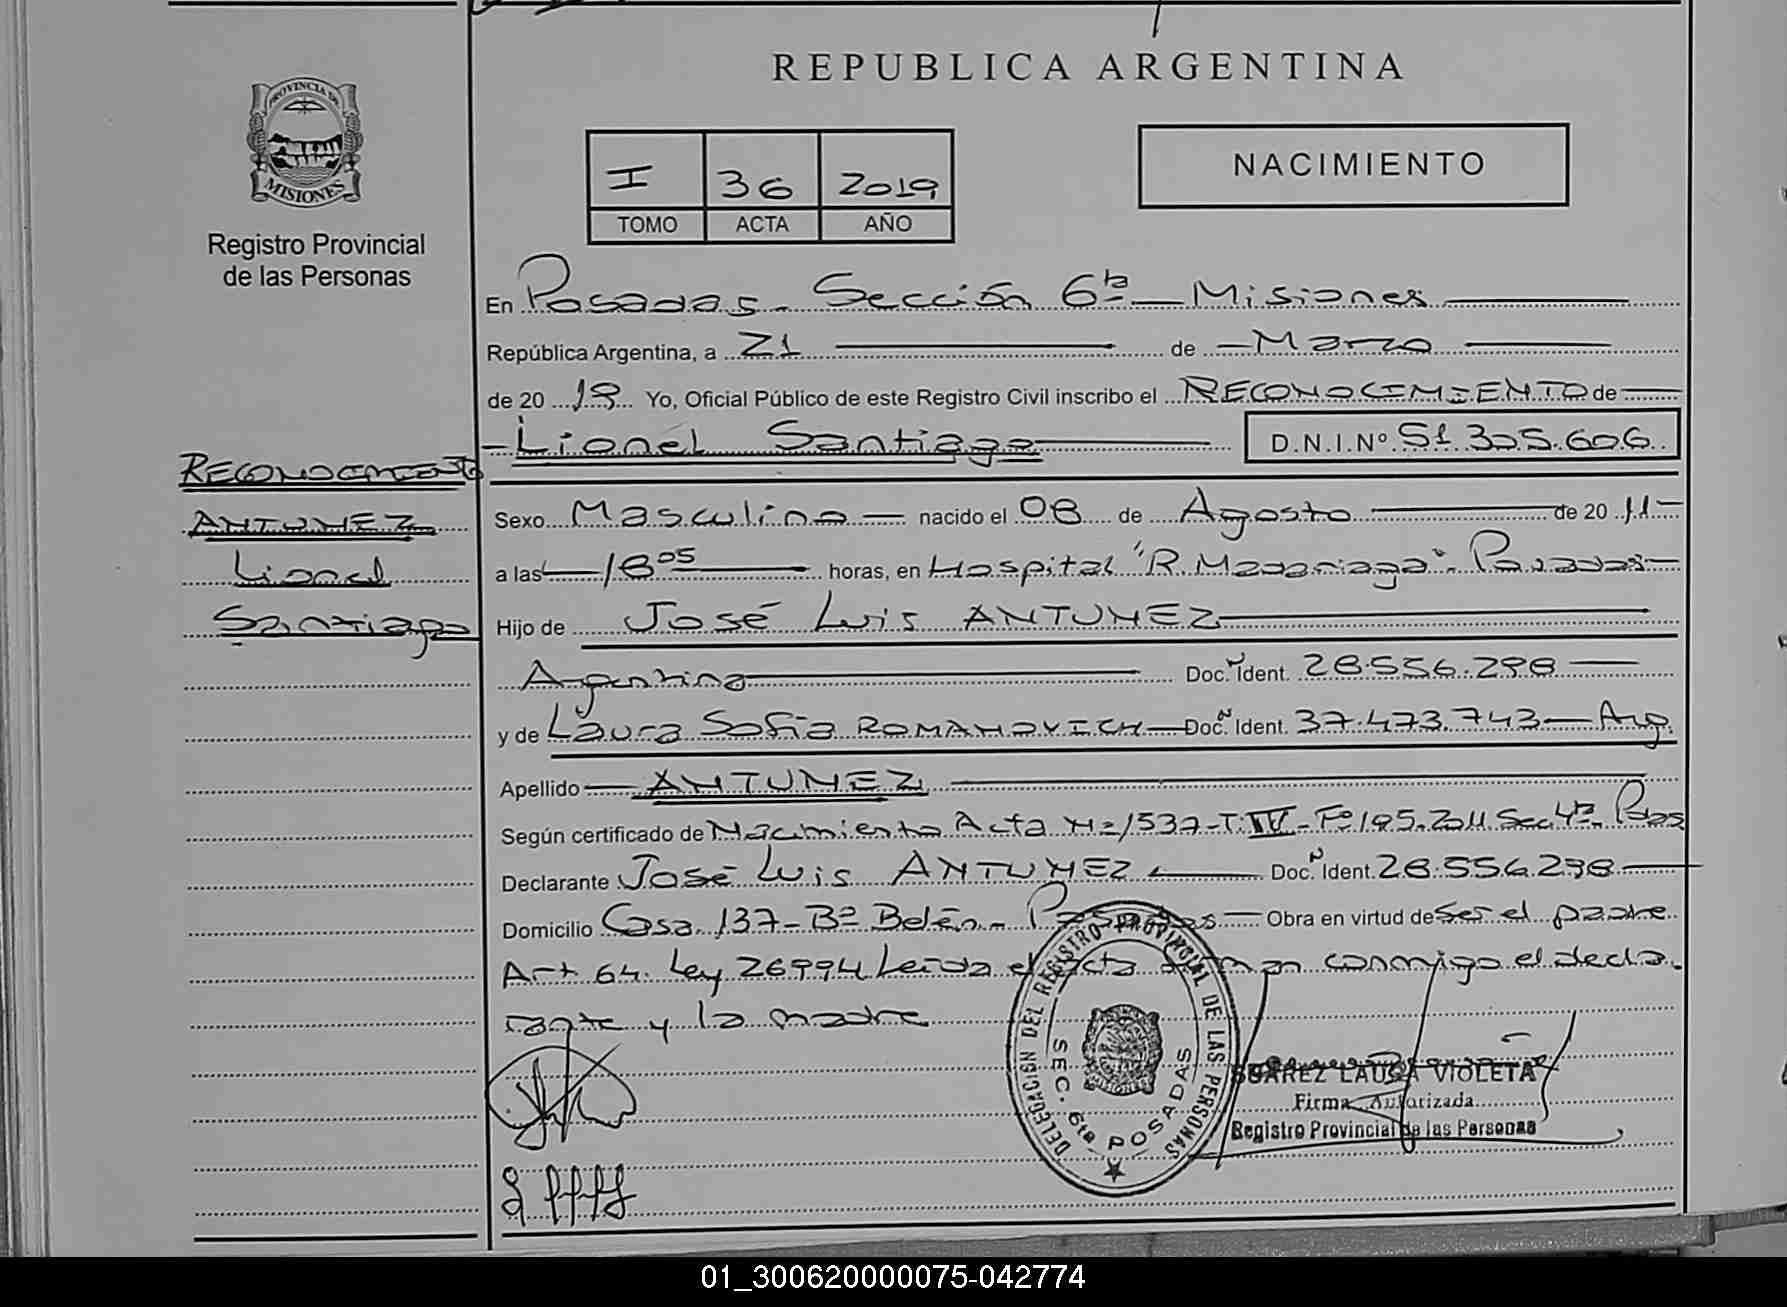 REPUBLICA ARGENTINA
PROVINCIA DE
MISIONES
Registro Provincial
de las Personas
I 36 2019
TOMO ACTA AÑO
NACIMIENTO
En Posadas - Sección 6ta - Misiones
República Argentina, a 21 de Marzo
de 2019 Yo, Oficial Público de este Registro Civil inscribo el RECONOCIMIENTO de
Lionel Santiago D.N.I.Nº 51.305.606
RECONOCIMIENTO
ANTUNEZ
Lionel
Santiago
Sexo Masculino nacido el 08 de Agosto de 2011
a las 18 05 horas, en Hospital "R. Madariaga". Posadas
Hijo de José Luis ANTUNEZ
Argentino Doc. Ident. 28.556.298
y de Laura Sofia ROMANOVICH Doc. Ident. 37.473.743 Arg.
Apellido ANTUNEZ
Según certificado de Nacimiento Acta Nº 1537-T. IV - Fº 195. 2011 Sec. 4ta. Pdas
Declarante José Luis ANTUNEZ Doc. Ident. 28.556.298
Domicilio Casa 137 - Bº Belén - Posadas Obra en virtud de ser el padre
Art 64. Ley 26994 Leída el acta firman conmigo el decla-
rante y la madre
DELEGACIÓN DEL REGISTRO PROVINCIAL DE LAS PERSONAS
SEC. 6ta POSADAS
SUAREZ LAURA VIOLETA
Firma Autorizada
Registro Provincial de las Personas
01_300620000075-042774